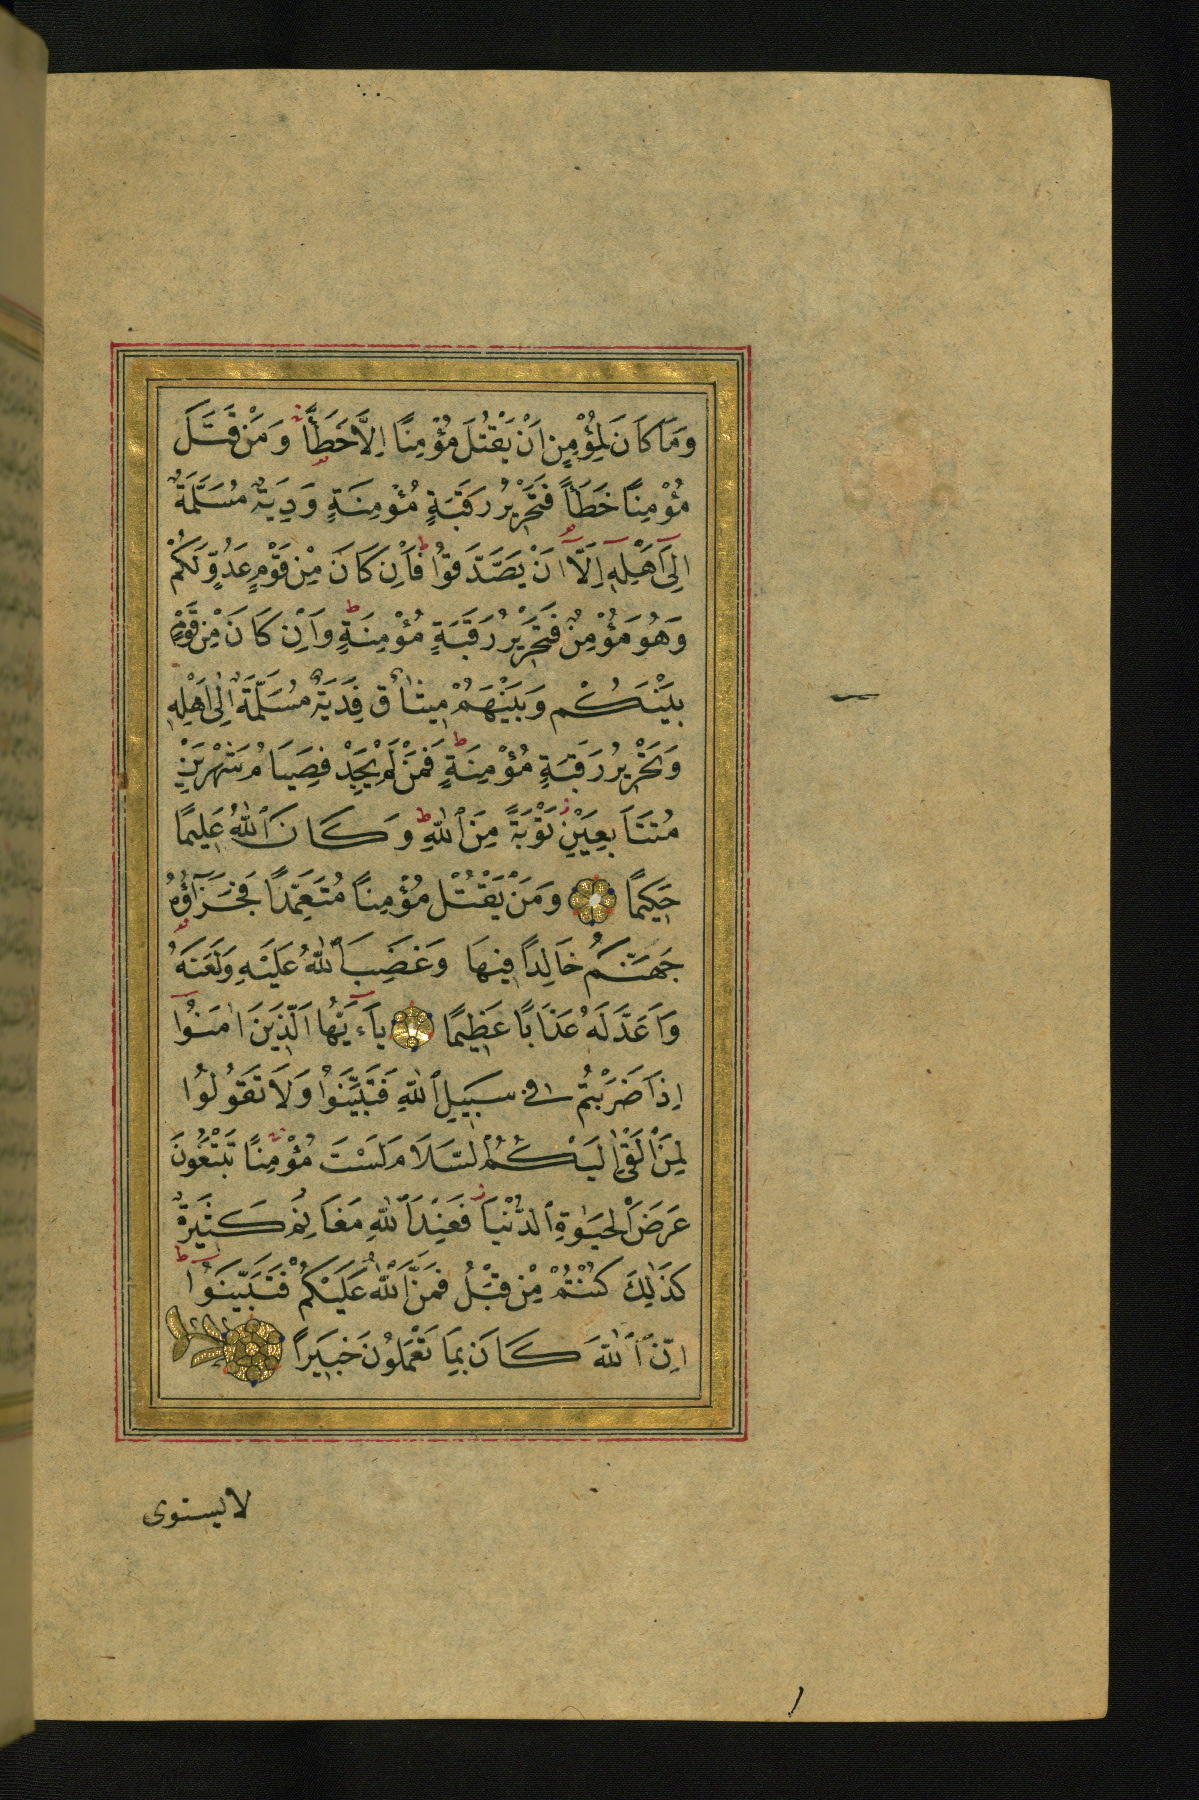 وَمَا كَانَ لِمُؤْمِنٍ اَنْ يَقْتُلَ مُؤْمِنًا اِلَّا خَطَأً وَمَنْ قَتَلَ
مُؤْمِنًا خَطَأً فَتَحْرِيْرُ رَقَبَةٍ مُؤْمِنَةٍ وَدِيَةٌ مُسَلَّمَةٌ
اِلٰٓى اَهْلِهٖٓ اِلَّآ اَنْ يَصَّدَّقُوْا فَاِنْ كَانَ مِنْ قَوْمٍ عَدُوٍّ لَكُمْ
وَهُوَ مُؤْمِنٌ فَتَحْرِيْرُ رَقَبَةٍ مُؤْمِنَةٍ وَاِنْ كَانَ مِنْ قَوْمٍ
بَيْنَكُمْ وَبَيْنَهُمْ مِيْثَاقٌ فَدِيَةٌ مُسَلَّمَةٌ اِلٰى اَهْلِهٖ
وَتَحْرِيْرُ رَقَبَةٍ مُؤْمِنَةٍ فَمَنْ لَمْ يَجِدْ فَصِيَامُ شَهْرَيْنِ
مُتَتَابِعَيْنِ تَوْبَةً مِنَ ٱللّٰهِ وَكَانَ ٱللّٰهُ عَلِيمًا
حَكِيمًا وَمَنْ يَقْتُلْ مُؤْمِنًا مُتَعَمِّدًا فَجَزَآؤُهُ
جَهَنَّمُ خَالِدًا فِيهَا وَغَضِبَ ٱللّٰهُ عَلَيْهِ وَلَعَنَهُ
وَاَعَدَّ لَهُ عَذَابًا عَظِيمًا يَآءَيُّهَا الَّذِيْنَ اٰمَنُوْٓا
اِذَا ضَرَبْتُمْ فِي سَبِيلِ ٱللّٰهِ فَتَبَيَّنُوْا وَلَا تَقُولُوا
لِمَنْ اَلْقٰٓى اِلَيْكُمُ ٱلسَّلَامَ لَسْتَ مُؤْمِنًا تَبْتَغُونَ
عَرَضَ ٱلْحَيٰوةِ ٱلدُّنْيَا فَعِنْدَ ٱللّٰهِ مَغَانِمُ كَثِيْرَةٌ
كَذٰلِكَ كُنْتُمْ مِنْ قَبْلُ فَمَنَّ ٱللّٰهُ عَلَيْكُمْ فَتَبَيَّنُوْا
اِنَّ ٱللّٰهَ كَانَ بِمَا تَعْمَلُوْنَ خَبِيْرًا
لا يستوى